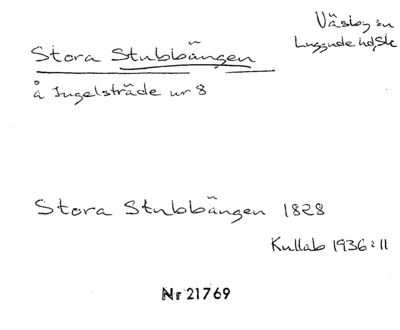 Väsby sn
Luggude hd, Sk
Stora Stubbängen
å Ingelsträde nr 8
Stora Stubbängen 1828
Kullab 1936:11
Nr 21769